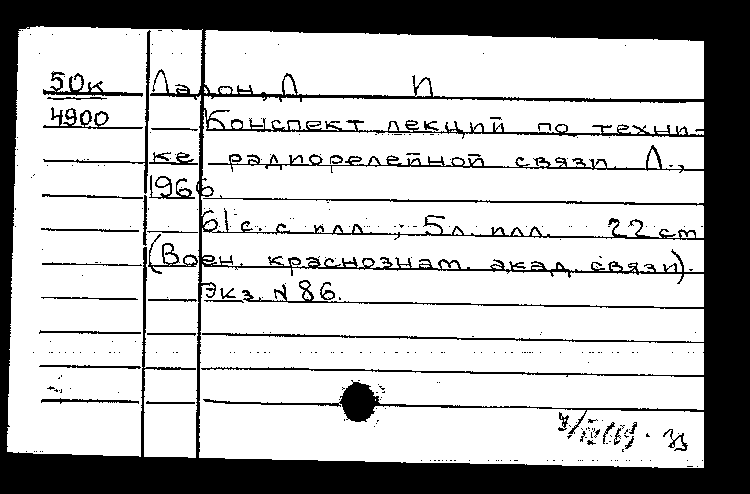 50к Ладон, Л И
4900 Конспект лекций по техни-
ке радиорелейной связи. Л.,
1966.
61 с. с илл.; 5 л. илл. 22 см
(Воен. краснознам. акад. связи).
Экз. N 86.